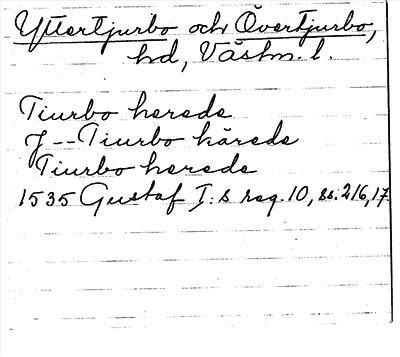 Yttertjurbo och Övertjurbo,
hd, Västm. l.
Tiurbo herede
J -- Tiurbo härede
Tiurbo herede
1535 Gustaf I:s reg. 10, ss. 216, 17.